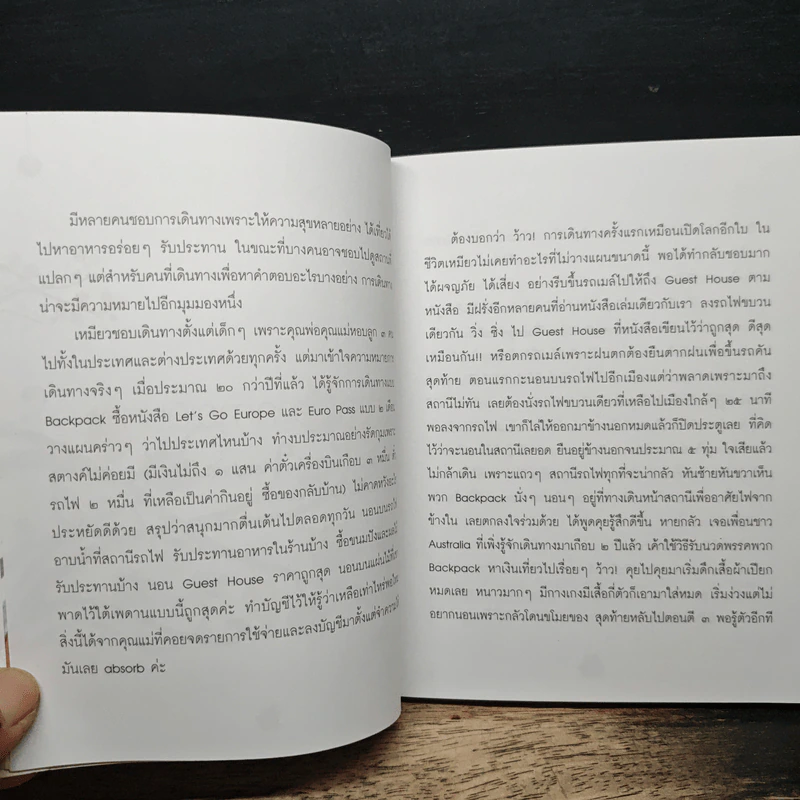 มีหลายคนชอบการเดินทางเพราะให้ความสุขหลายอย่าง ได้เที่ยว ได้
ไปหาอาหารอร่อยๆ รับประทาน ในขณะที่บางคนอาจชอบไปดูสถานที่
แปลกๆ แต่สำหรับคนที่เดินทางเพื่อหาคำตอบอะไรบางอย่าง การเดินทาง
น่าจะมีความหมายไปอีกมุมมองหนึ่ง
เหมียวชอบเดินทางตั้งแต่เด็กๆ เพราะคุณพ่อคุณแม่หอบลูก ๓ คน
ไปทั้งในประเทศและต่างประเทศด้วยทุกครั้ง แต่มาเข้าใจความหมายการ
เดินทางจริงๆ เมื่อประมาณ ๒๐ กว่าปีที่แล้ว ได้รู้จักการเดินทางแบบ
Backpack ซื้อหนังสือ Let's Go Europe และ Euro Pass แบบ ๒ เดือน
วางแผนคร่าวๆ ว่าไปประเทศไหนบ้าง ทำงบประมาณอย่างรัดกุมเพราะ
สตางค์ไม่ค่อยมี (มีเงินไม่ถึง ๑ แสน ค่าตั๋วเครื่องบินเกือบ ๓ หมื่น
รถไฟ ๒ หมื่น ที่เหลือเป็นค่ากินอยู่ ซื้อของกลับบ้าน) ไม่คาดหวังอะไร
ประหยัดดีด้วย สรุปว่าสนุกมากตื่นเต้นไปตลอดทุกวัน นอนบนรถไฟ
อาบน้ำที่สถานีรถไฟ รับประทานอาหารในร้านบ้าง ซื้อขนมปังและ
รับประทานบ้าง นอน Guest House ราคาถูกสุด นอนบนแผ่นไม้ที่
พาดไว้ใต้เพดานแบบนี้ถูกสุดค่ะ ทำบัญชีไว้ให้รู้ว่าเหลือเท่าไหร่พอไหม
สิ่งนี้ได้จากคุณแม่ที่คอยจดรายการใช้จ่ายและลงบัญชีมาตั้งแต่จำความได้
มันเลย absorb ค่ะ
ต้องบอกว่า ว้าว! การเดินทางครั้งแรกเหมือนเปิดโลกอีกใบ ใน
ชีวิตเหมียวไม่เคยทำอะไรที่ไม่วางแผนขนาดนี้ พอได้ทำกลับชอบมาก
ได้ผจญภัย ได้เสี่ยง อย่างรีบขึ้นรถเมล์ไปให้ถึง Guest House ตาม
หนังสือ มีฝรั่งอีกหลายคนที่อ่านหนังสือเล่มเดียวกับเรา ลงรถไฟขบวน
เดียวกัน วิ่ง ซิ่ง ไป Guest House ที่หนังสือเขียนไว้ว่าถูกสุด ดีสุด
เหมือนกัน!! หรือตกรถเมล์เพราะฝนตกต้องยืนตากฝนเพื่อขึ้นรถคัน
สุดท้าย ตอนแรกกะนอนบนรถไฟไปอีกเมืองแต่ว่าพลาดเพราะมาถึง
สถานีไม่ทัน เลยต้องนั่งรถไฟขบวนเดียวที่เหลือไปเมืองใกล้ๆ ๒๕ นาที
พอลงจากรถไฟ เขาก็ไล่ให้ออกมาข้างนอกหมดแล้วก็ปิดประตูเลย ที่คิด
ไว้ว่าจะนอนในสถานีเลยอด ยืนอยู่ข้างนอกจนประมาณ ๕ ทุ่ม ใจเสียแล้ว
ไม่กล้าเดิน เพราะแถวๆ สถานีรถไฟทุกที่จะน่ากลัว หันซ้ายหันขวาเห็น
พวก Backpack นั่งๆ นอนๆ อยู่ที่ทางเดินหน้าสถานีเพื่ออาศัยไฟจาก
ข้างใน เลยตกลงใจร่วมด้วย ได้พูดคุยรู้สึกดีขึ้น หายกลัว เจอเพื่อนชาว
Australia ที่เพิ่งรู้จักเดินทางมาเกือบ ๒ ปีแล้ว เค้าใช้วิธีรับนวดพรรคพวก
Backpack หาเงินเที่ยวไปเรื่อยๆ ว้าว! คุยไปคุยมาเริ่มดึกเสื้อผ้าเปียก
หมดเลย หนาวมากๆ มีกางเกงมีเสื้อกี่ตัวก็เอามาใส่หมด เริ่มง่วงแต่ไม่
อยากนอนเพราะกลัวโดนขโมยของ สุดท้ายหลับไปตอนตี ๓ พอรู้ตัวอีกที